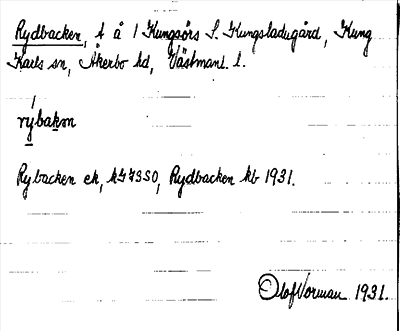 Rydbacken, t å 1 Kungsörs S. Kungsladugård, Kung
Karls sn, Åkerbo hd, Västmanl. l.
rybakm
Rybacken ek, Rydbacken kb 1931.
Olof Vorman 1931.